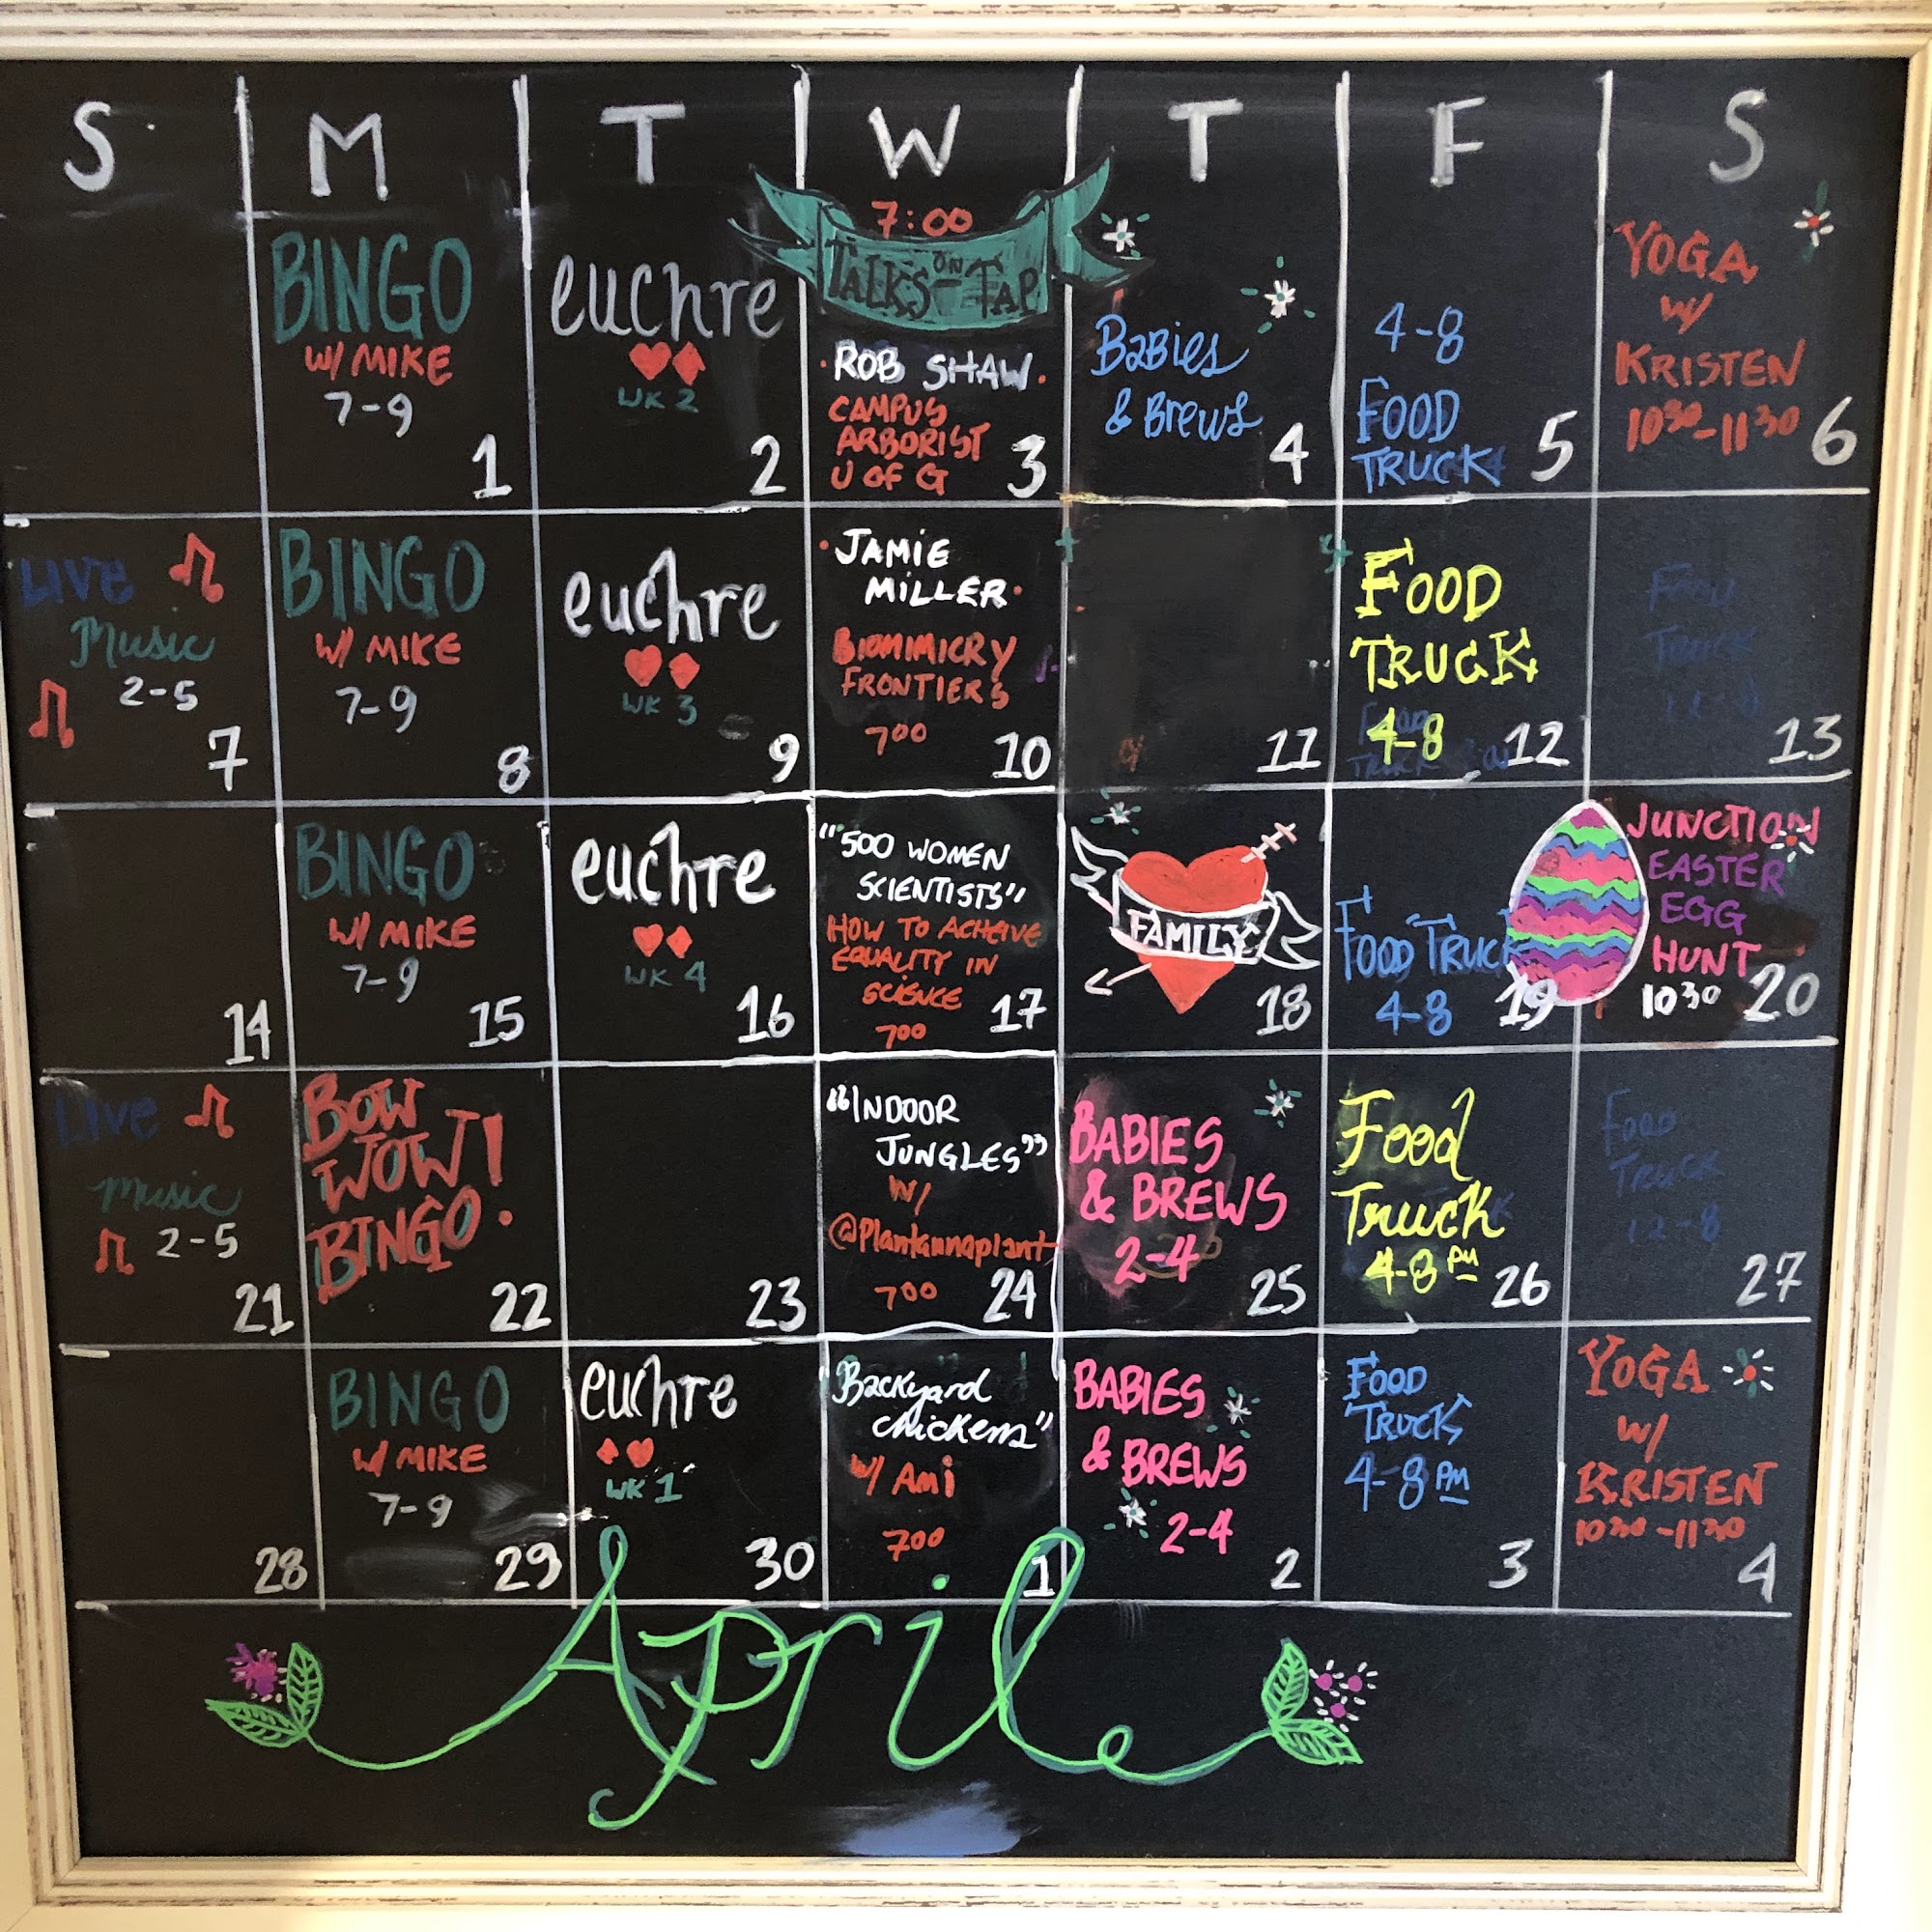 S M T W T F S
BINGO
W/ MIKE
7-9
1
euchre
WK 2
2
7:00
TALKS ON TAP
ROB SHAW
CAMPUS
ARBORIST
U OF G
3
Babies
& Brews
4
4-8
FOOD
TRUCK
5
YOGA
W/
KRISTEN
10³⁰-11³⁰
6
LIVE
Music
2-5
7
BINGO
W/ MIKE
7-9
8
euchre
WK 3
9
JAMIE
MILLER
BIOMIMICRY
FRONTIERS
7⁰⁰
10
11
FOOD
TRUCK
4-8
12
Food
Truck
13
14
BINGO
W/ MIKE
7-9
15
euchre
WK 4
16
"500 WOMEN
SCIENTISTS"
HOW TO ACHEIVE
EQUALITY IN
SCIENCE
7⁰⁰
17
FAMILY
18
FOOD TRUCK
4-8
19
JUNCTION
EASTER
EGG
HUNT
10³⁰
20
Live
music
2-5
21
BOW
WOW!
BINGO.
22
23
"INDOOR
JUNGLES"
W/
@Plantannaplant
7⁰⁰
24
BABIES
& BREWS
2-4
25
Food
Truck
4-8 PM
26
Food
Truck
12-8
27
28
BINGO
W/ MIKE
7-9
29
euchre
WK 1
30
"Backyard
chickens"
W/ Ami
7⁰⁰
1
BABIES
& BREWS
2-4
2
FOOD
TRUCK
4-8 PM
3
YOGA
W/
KRISTEN
10³⁰-11³⁰
4
April